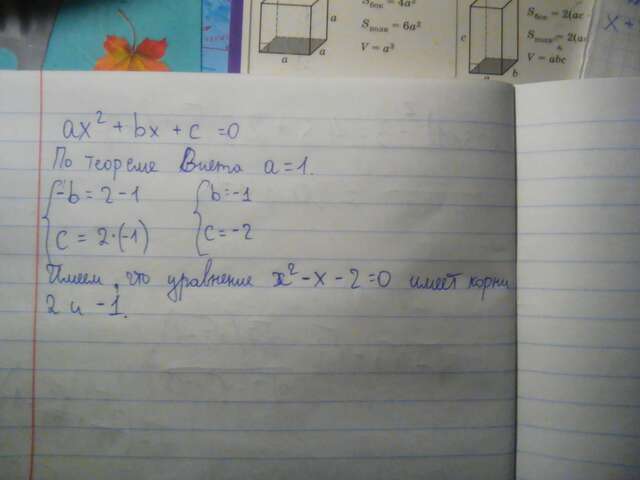 Sбок = 4a²
Sполн = 6a²
V = a³
a
a
a
Sбок = 2(ac
Sполн = 2(a
V = abc
c
a
b
ax² + bx + c = 0
По теореме Виета a = 1.
-b = 2 - 1
b = -1
c = 2·(-1)
c = -2
Имеем, что уравнение x² - x - 2 = 0 имеет корни
2 и -1.